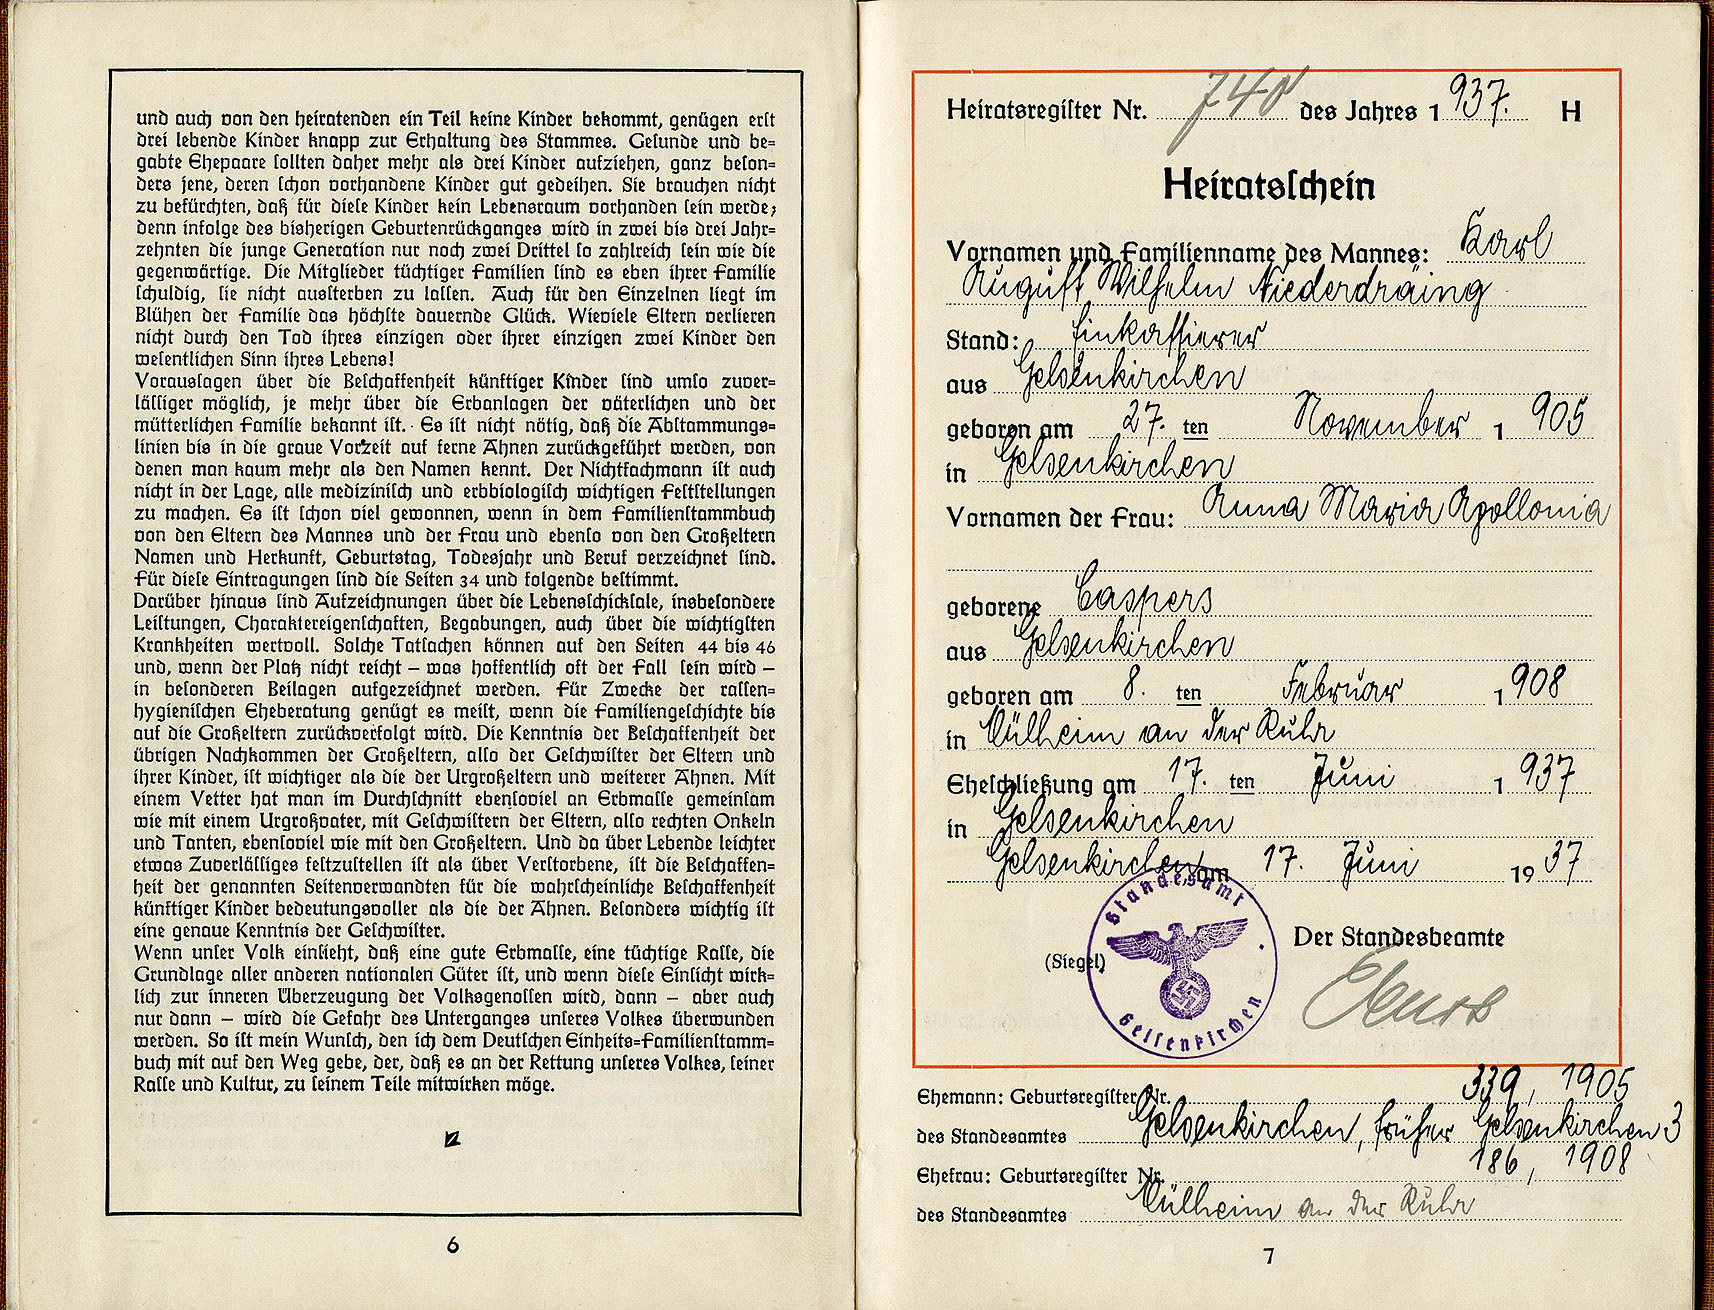 und auch von den heiratenden ein Teil keine Kinder bekommt, genügen erst
drei lebende Kinder knapp zur Erhaltung des Stammes. Gesunde und be=
gabte Ehepaare sollten daher mehr als drei Kinder aufziehen, ganz beson=
ders jene, deren schon vorhandene Kinder gut gedeihen. Sie brauchen nicht
zu befürchten, daß für diese Kinder kein Lebensraum vorhanden sein werde;
denn infolge des bisherigen Geburtenrückganges wird in zwei bis drei Jahr=
zehnten die junge Generation nur noch zwei Drittel so zahlreich sein wie die
gegenwärtige. Die Mitglieder tüchtiger Familien sind es eben ihrer Familie
schuldig, sie nicht aussterben zu lassen. Auch für den Einzelnen liegt im
Blühen der Familie das höchste dauernde Glück. Wieviele Eltern verlieren
nicht durch den Tod ihres einzigen oder ihrer einzigen zwei Kinder den
wesentlichen Sinn ihres Lebens!
Voraussagen über die Beschaffenheit künftiger Kinder sind umso zuver=
lässiger möglich, je mehr über die Erbanlagen der väterlichen und der
mütterlichen Familie bekannt ist. Es ist nicht nötig, daß die Abstammungs=
linien bis in die graue Vorzeit auf ferne Ahnen zurückgeführt werden, von
denen man kaum mehr als den Namen kennt. Der Nichtfachmann ist auch
nicht in der Lage, alle medizinisch und erbbiologisch wichtigen Feststellungen
zu machen. Es ist schon viel gewonnen, wenn in dem Familienstammbuch
von den Eltern des Mannes und der Frau und ebenso von den Großeltern
Namen und Herkunft, Geburtstag, Todesjahr und Beruf verzeichnet sind.
Für diese Eintragungen sind die Seiten 34 und folgende bestimmt.
Darüber hinaus sind Aufzeichnungen über die Lebensschicksale, insbesondere
Leistungen, Charaktereigenschaften, Begabungen, auch über die wichtigsten
Krankheiten wertvoll. Solche Tatsachen können auf den Seiten 44 bis 46
und, wenn der Platz nicht reicht – was hoffentlich oft der Fall sein wird –
in besonderen Beilagen aufgezeichnet werden. Für Zwecke der rassen=
hygienischen Eheberatung genügt es meist, wenn die Familiengeschichte bis
auf die Großeltern zurückverfolgt wird. Die Kenntnis der Beschaffenheit der
übrigen Nachkommen der Großeltern, also der Geschwister der Eltern und
ihrer Kinder, ist wichtiger als die der Urgroßeltern und weiterer Ahnen. Mit
einem Vetter hat man im Durchschnitt ebensoviel an Erbmasse gemeinsam
wie mit einem Urgroßvater, mit Geschwistern der Eltern, also rechten Onkeln
und Tanten, ebensoviel wie mit den Großeltern. Und da über Lebende leichter
etwas Zuverlässiges festzustellen ist als über Verstorbene, ist die Beschaffen=
heit der genannten Seitenverwandten für die wahrscheinliche Beschaffenheit
künftiger Kinder bedeutungsvoller als die der Ahnen. Besonders wichtig ist
eine genaue Kenntnis der Geschwister.
Wenn unser Volk einsieht, daß eine gute Erbmasse, eine tüchtige Rasse, die
Grundlage aller anderen nationalen Güter ist, und wenn diese Einsicht wirk=
lich zur inneren Überzeugung der Volksgenossen wird, dann – aber auch
nur dann – wird die Gefahr des Unterganges unseres Volkes überwunden
werden. So ist mein Wunsch, den ich dem Deutschen Einheits=Familienstamm=
buch mit auf den Weg gebe, der, daß es an der Rettung unseres Volkes, seiner
Rasse und Kultur, zu seinem Teile mitwirken möge.
6
Heiratsregister Nr. 740 des Jahres 1937. H
Heiratsschein
Vornamen und Familienname des Mannes: Karl
August Wilhelm Niederdräing
Stand: Einkassierer
aus Gelsenkirchen
geboren am 27. ten November 1905
in Gelsenkirchen
Vornamen der Frau: Anna Maria Apollonia
geborene Caspers
aus Gelsenkirchen
geboren am 8. ten Februar 1908
in Mülheim an der Ruhr
Eheschließung am 17. ten Juni 1937
in Gelsenkirchen
Gelsenkirchen, am 17. Juni 1937
Standesamt
Der Standesbeamte
(Siegel)
Gelsenkirchen
Ehemann: Geburtsregister Nr. 339, 1905
des Standesamtes Gelsenkirchen, früher Gelsenkirchen 3
Ehefrau: Geburtsregister Nr. 186, 1908
des Standesamtes Mülheim an der Ruhr
7